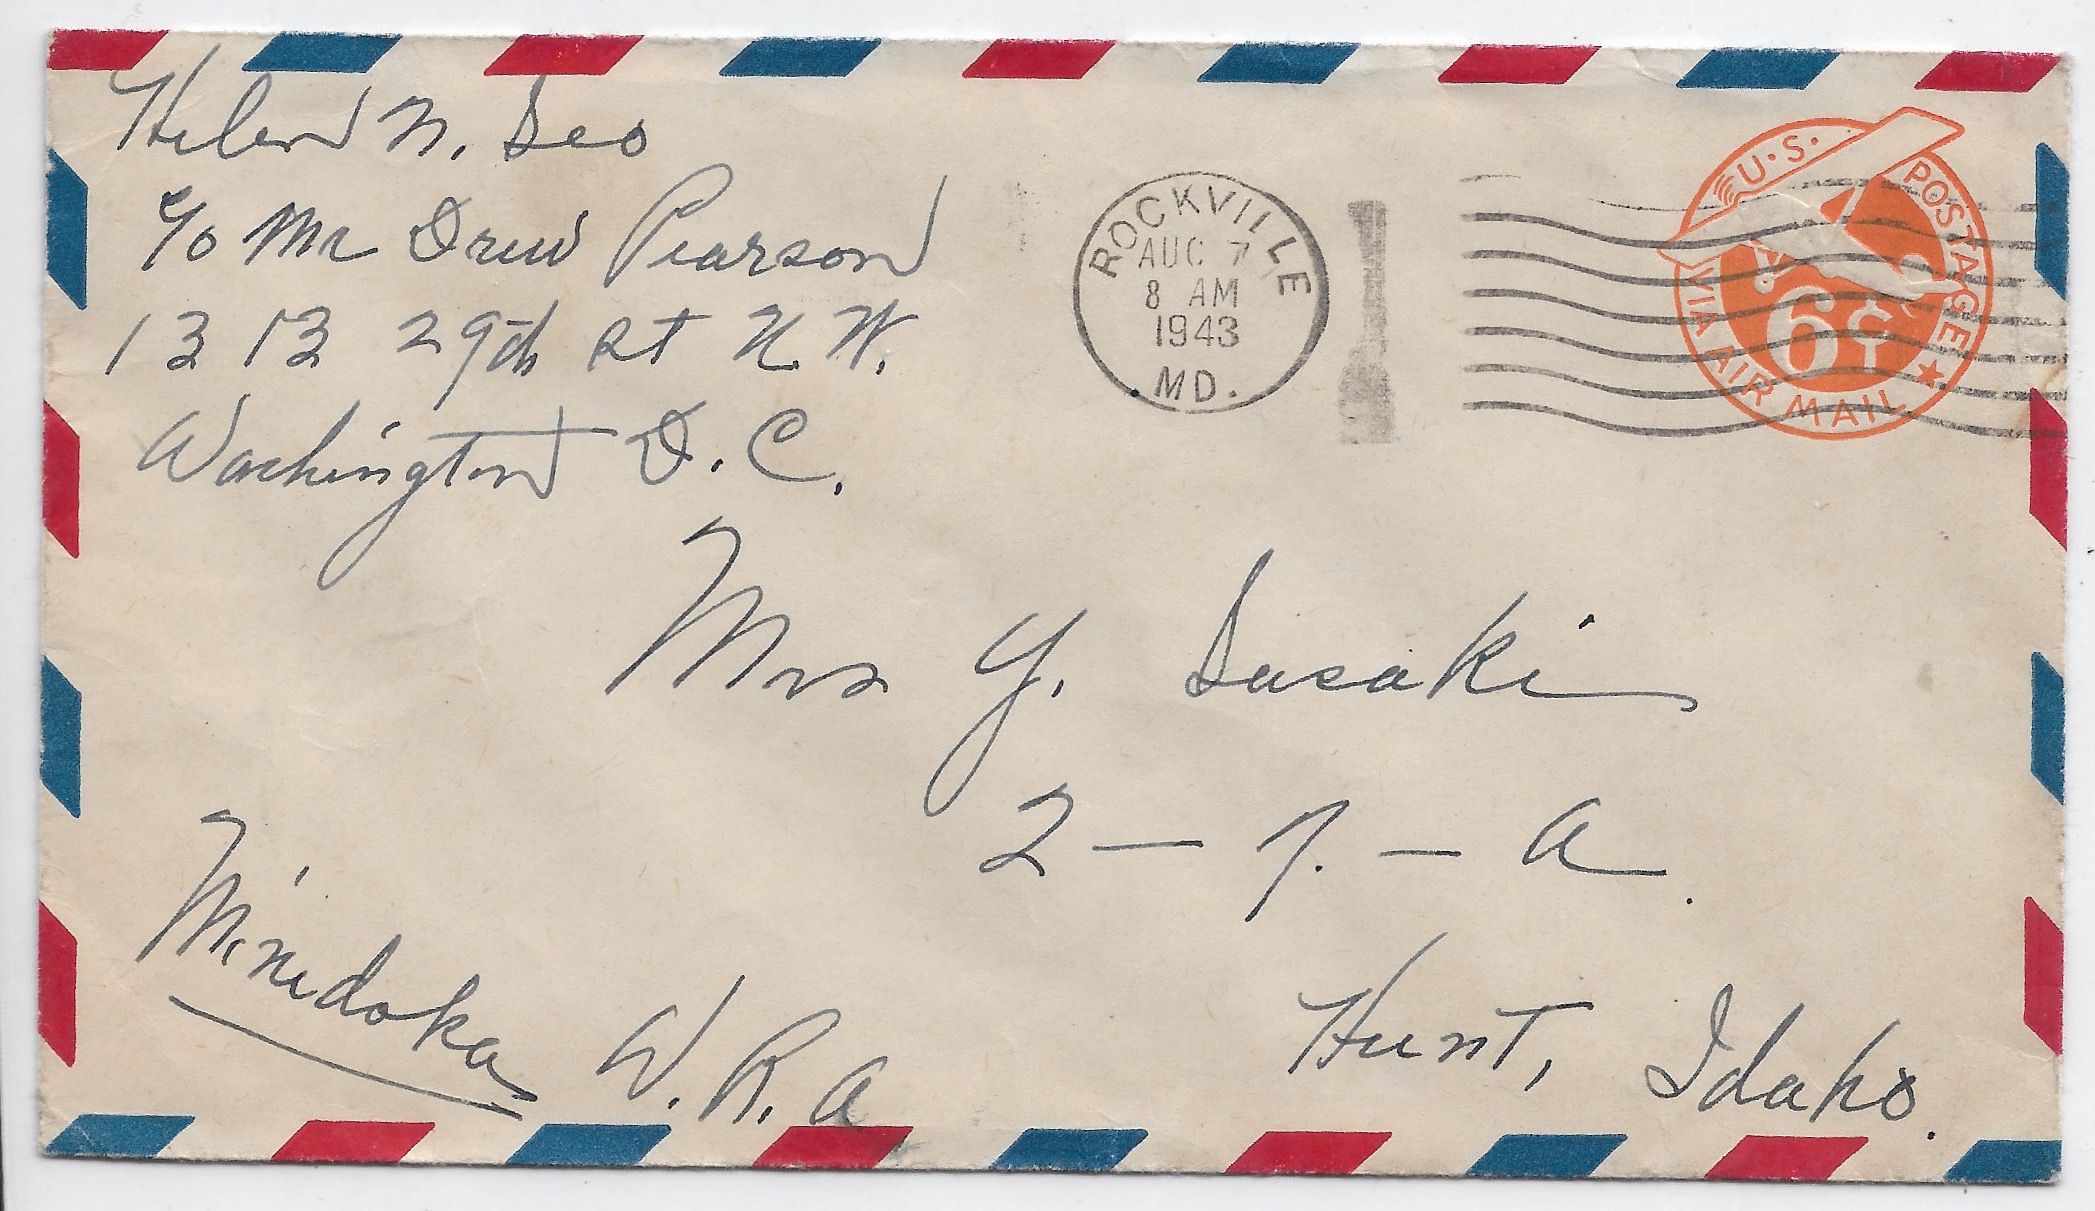 Helen N. Seo
c/o Mr Drew Pearson
1313 29th St N.W.
Washington D.C.
ROCKVILLE
AUG 7
8 AM
1943
MD.
U.S. POSTAGE
6¢
VIA AIR MAIL
Mrs Y. Sasaki
2 - 7. - A.
Hunt, Idaho.
Minidoka W.R.A